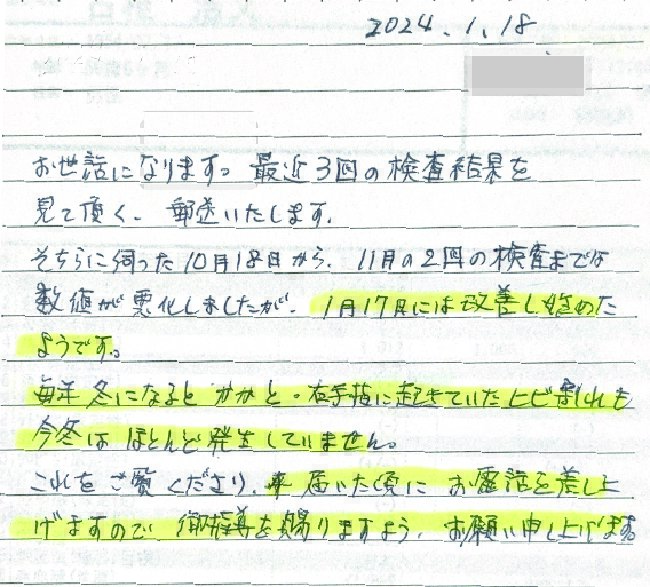 2024.1.18
お世話になります。最近3回の検査結果を
見て頂く、郵送いたします.
そちらに伺った10月18日から、11月の2回の検査までは
数値が悪化しましたが、1月17日には改善し始めた
ようです。
毎年冬になるとかかと・右手指に起きていたヒビ割れも
今冬はほとんど発生していません。
これをご覧ください、届いた頃にお電話を差し上
げますので御指導を賜りますよう、お願い申し上げます